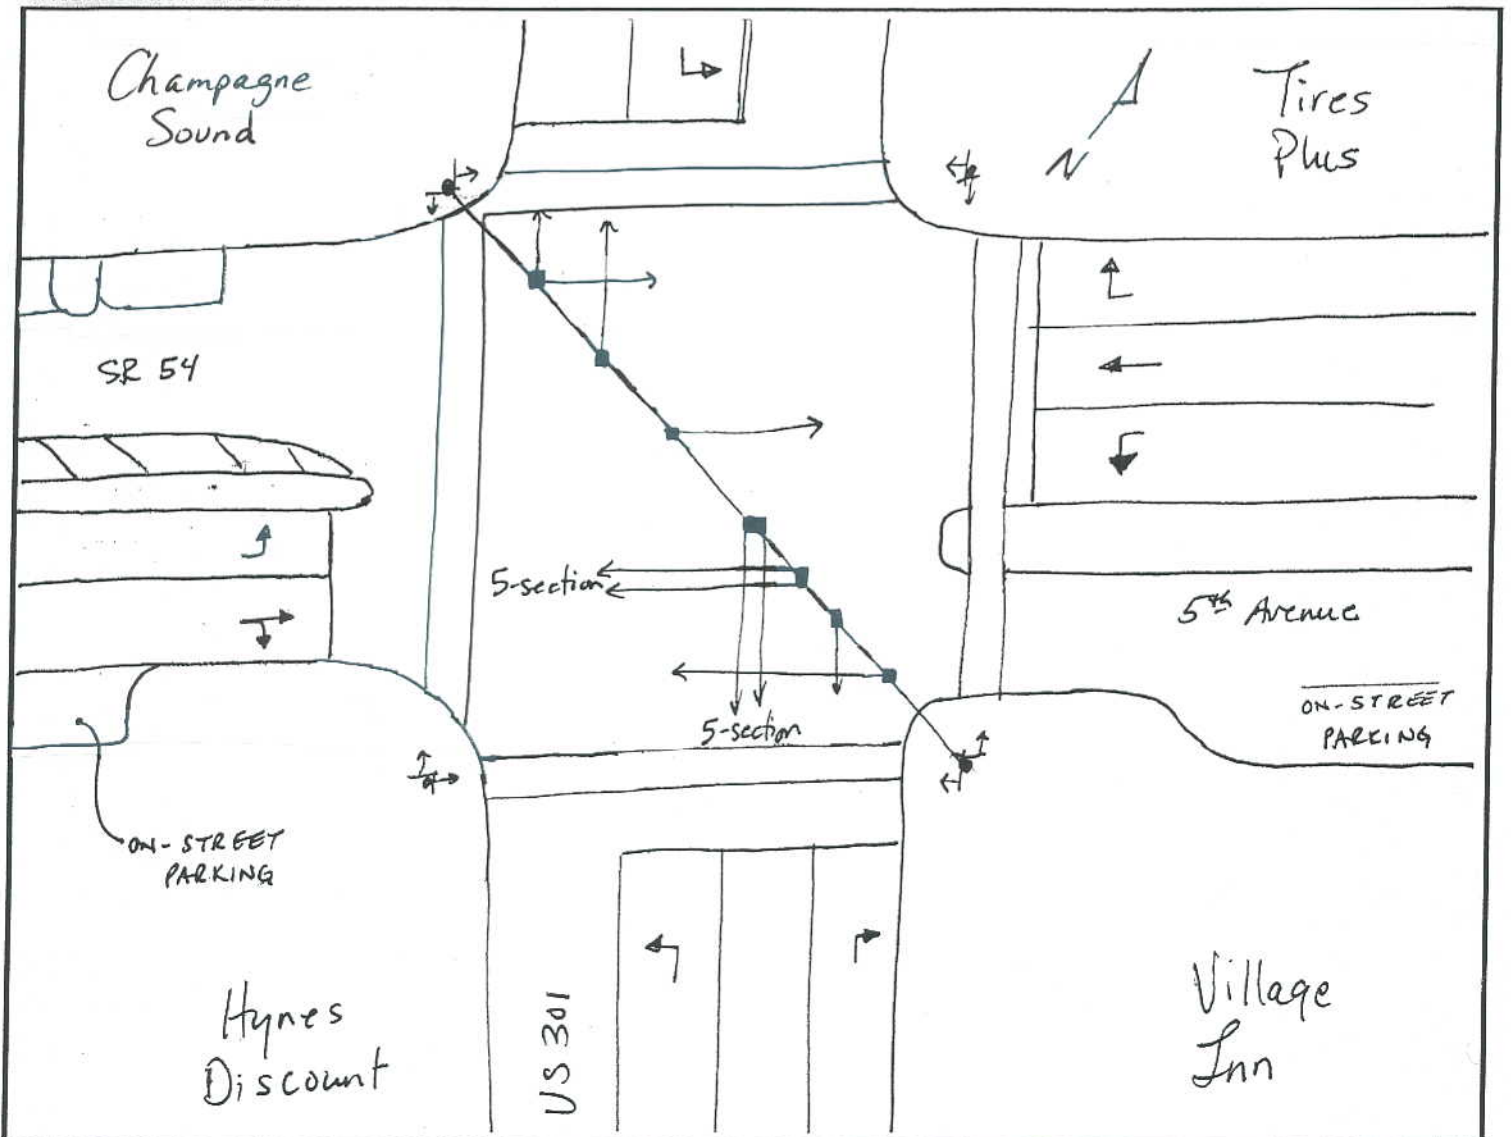 Champagne
Sound
Tires
Plus
N
SR 54
5-section
5-section
5th Avenue
ON-STREET
PARKING
ON-STREET
PARKING
Hynes
Discount
US 301
Village
Inn